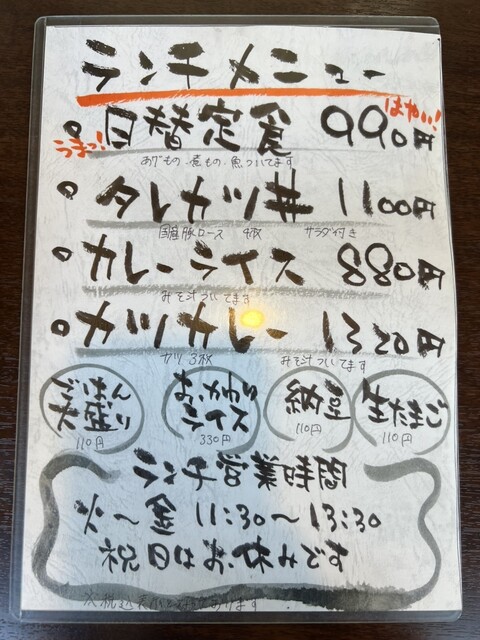 ランチメニュー
はやい!
うまっ!
日替定食 990円
あげもの、煮もの、魚ついてます
タレカツ丼 1100円
国産豚ロース 4枚 サラダ付き
カレーライス 880円
みそ汁ついてます
カツカレー 1320円
カツ3枚 みそ汁ついてます
ごはん大盛り 110円
おかわりライス 330円
納豆 110円
生たまご 110円
ランチ営業時間
火〜金 11:30〜13:30
祝日はお休みです
※税込表示となっております